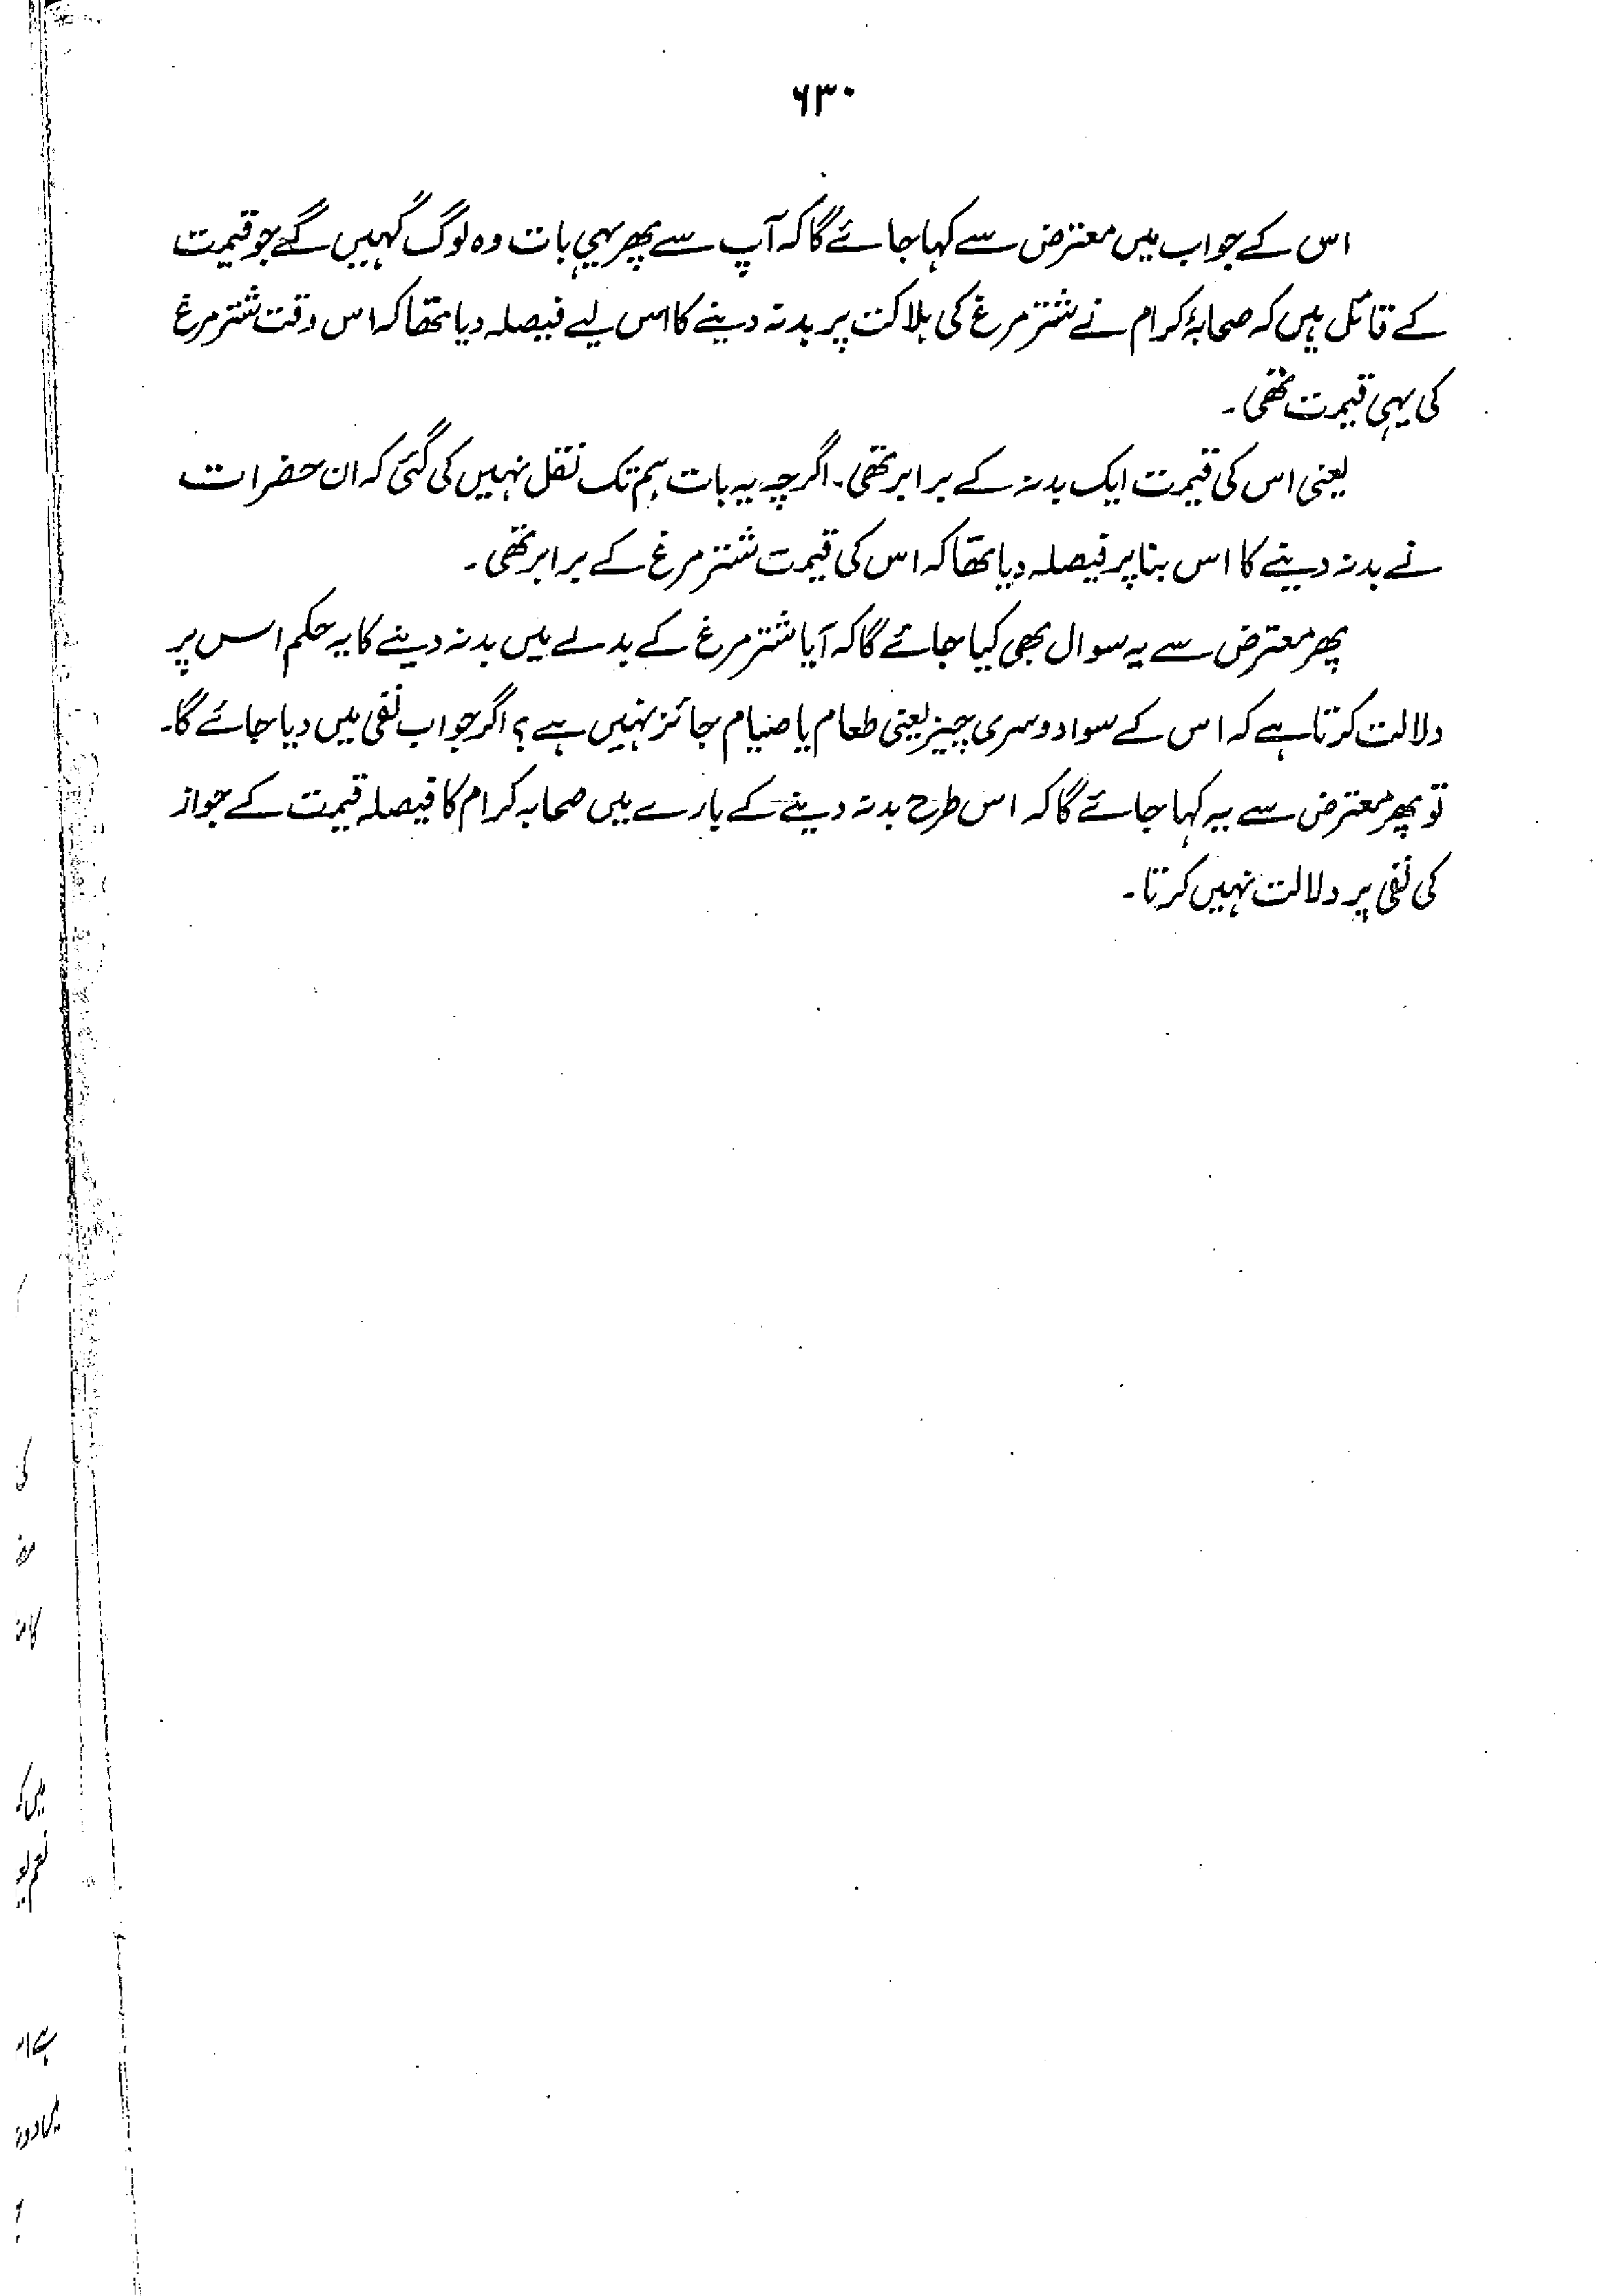 ۶۳۰
اس کے جواب میں معترض سے کہا جائے گا کہ آپ سے پھر یہی بات وہ لوگ کہیں گے جو قیمت
کے قائل ہیں کہ صحابۂ کرام نے شتر مرغ کی ہلاکت پر بدنہ دینے کا اس لیے فیصلہ دیا تھا کہ اس وقت شتر مرغ
کی یہی قیمت تھی۔
یعنی اس کی قیمت ایک بدنہ کے برابر تھی۔ اگرچہ یہ بات ہم تک نقل نہیں کی گئی کہ ان حضرات
نے بدنہ دینے کا اس بنا پر فیصلہ دیا تھا کہ اس کی قیمت شتر مرغ کے برابر تھی۔
پھر معترض سے یہ سوال بھی کیا جائے گا کہ آیا شتر مرغ کے بدلے میں بدنہ دینے کا یہ حکم اس پر
دلالت کرتا ہے کہ اس کے سوا دوسری چیز یعنی طعام یا صیام جائز نہیں ہے؟ اگر جواب نفی میں دیا جائے گا۔
تو پھر معترض سے یہ کہا جائے گا کہ اس طرح بدنہ دینے کے بارے میں صحابہ کرام کا فیصلہ قیمت کے جواز
کی نفی پر دلالت نہیں کرتا۔